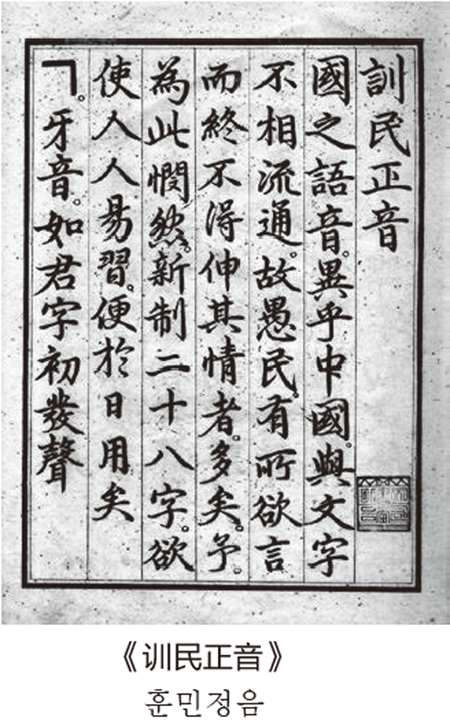 訓民正音
國之語音。異乎中國。與文字
不相流通。故愚民。有所欲言
而終不得伸其情者。多矣。予。
為此憫然。新制二十八字。欲
使人人易習。便於日用矣
ㄱ。牙音。如君字初發聲
《训民正音》
훈민정음